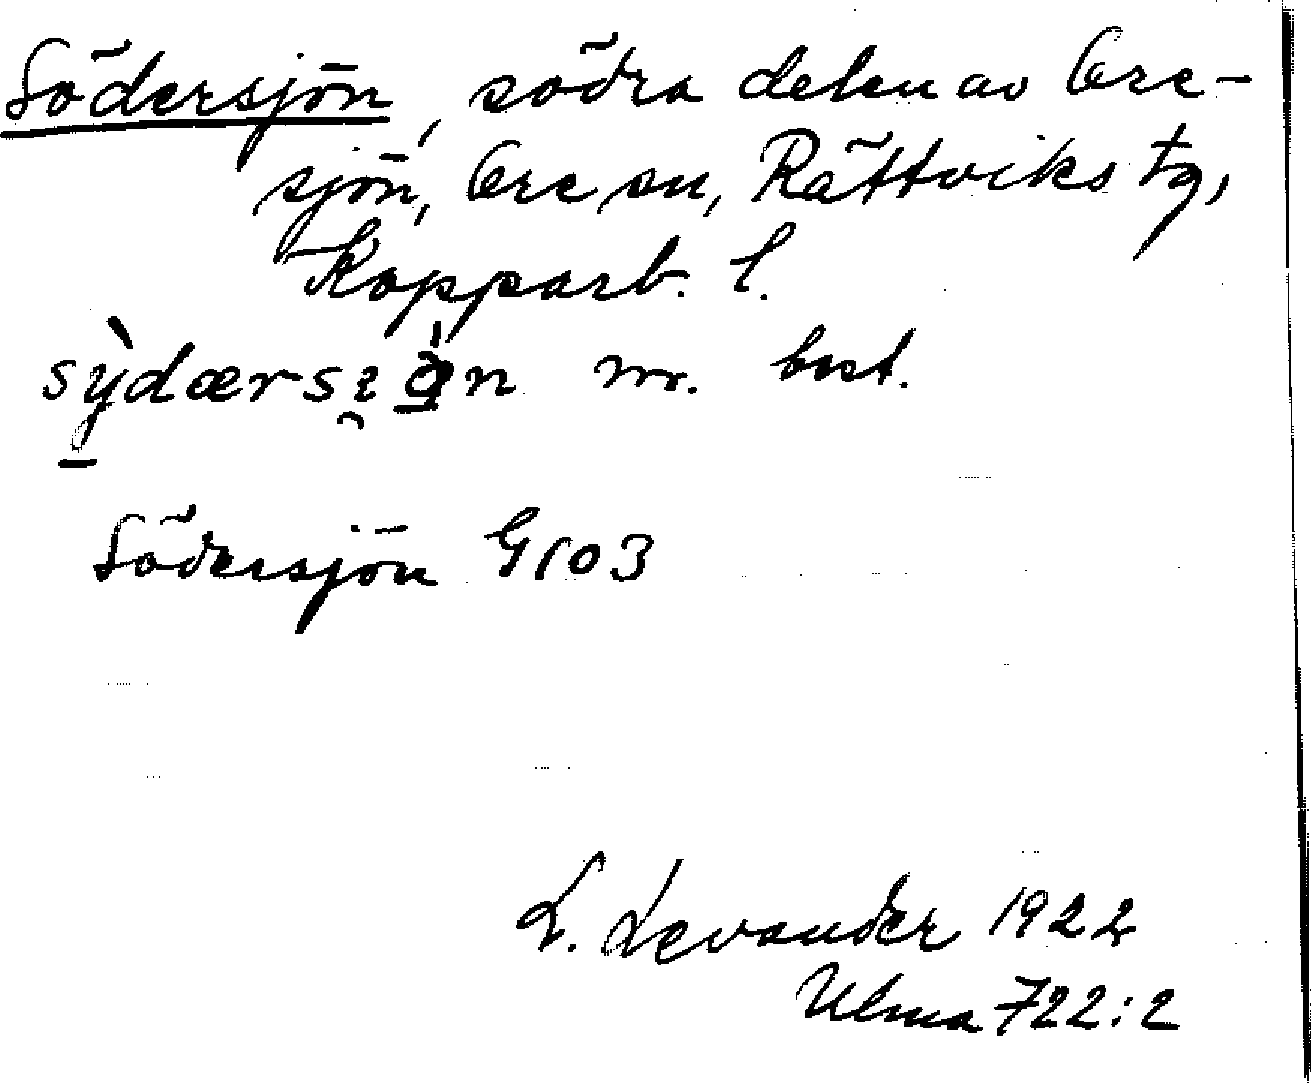 Södersjön, södra delen av Ore-
sjön, Ore sn, Rättviks tg,
Kopparb. l.
m. best.
Södersjön G103
L. Levander 1922
Ulma 722:2